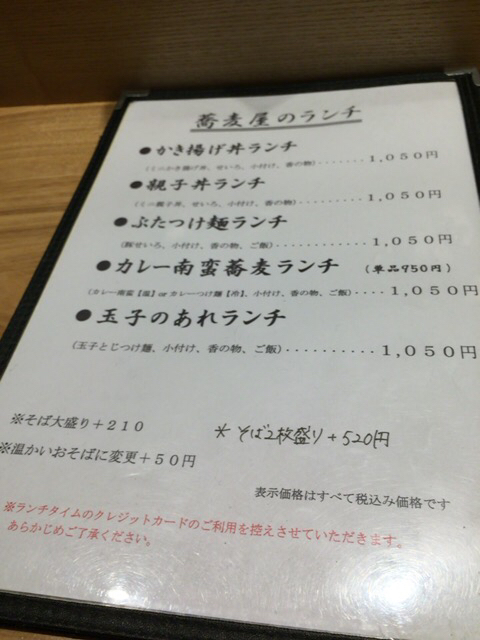 蕎麦屋のランチ
●かき揚げ丼ランチ
(ミニかき揚げ丼、せいろ、小付け、香の物)........1,050円
●親子丼ランチ
(ミニ親子丼、せいろ、小付け、香の物)............1,050円
●ぶたつけ麺ランチ
(豚せいろ、小付け、香の物、ご飯)............1,050円
●カレー南蛮蕎麦ランチ (単品950円)
(カレー南蛮【温】orカレーつけ麺【冷】、小付け、香の物、ご飯)....1,050円
●玉子のあれランチ
(玉子とじつけ麺、小付け、香の物、ご飯)..........1,050円
※そば大盛り+210
＊そば2枚盛り+520円
※温かいおそばに変更+50円
表示価格はすべて税込み価格です
※ランチタイムのクレジットカードのご利用を控えさせていただきます。
あらかじめご了承ください。